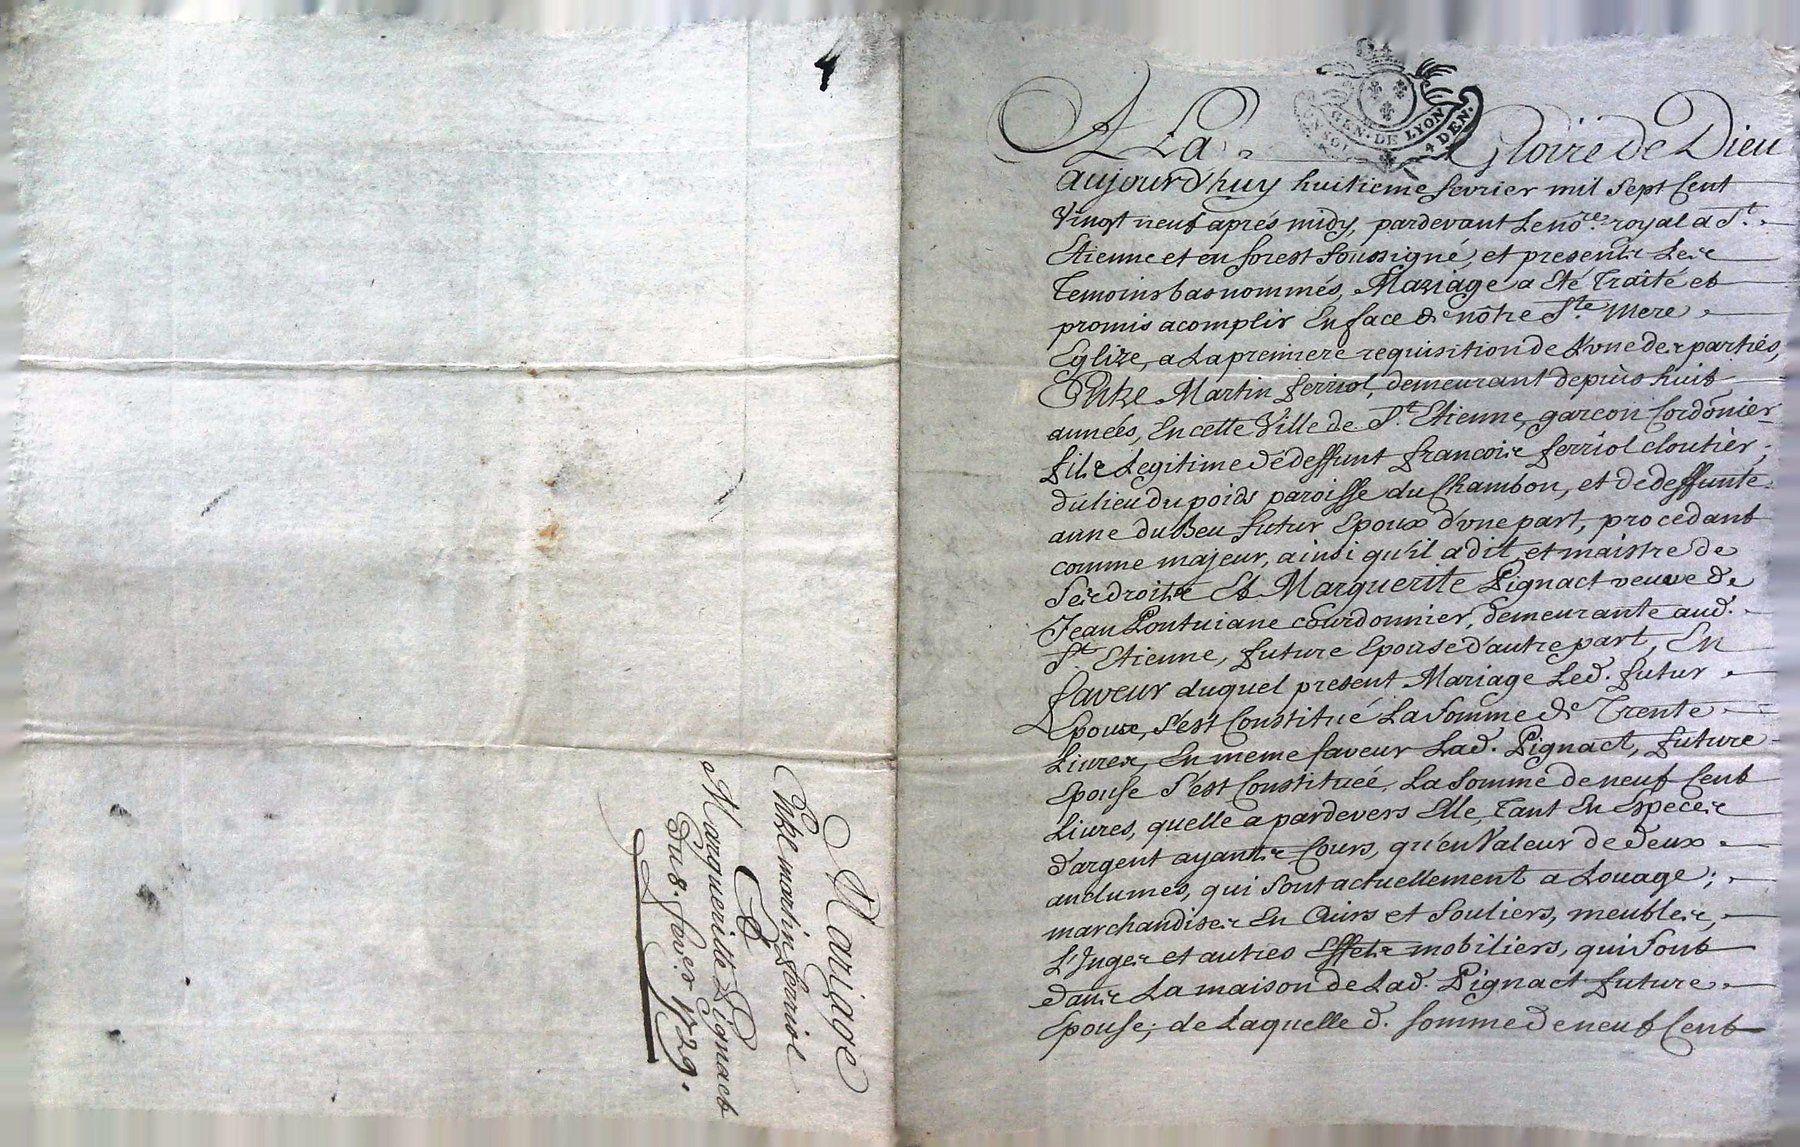 4
Mariage
Entre martin ferriol
Et
Margueritte Pignact
Du 8. fevrier 1729.
GEN. DE LYON
4 DEN.
A La Gloire de Dieu
aujourd'huy huitieme fevrier mil sept Cent
Vingt neuf aprés midy, pardevant Le no.re royal a S.t
Etienne et en forest soussigné, et presents Les
Temoins bas nommés, Mariage a Eté Traité et
promis acomplir En face de nôtre S.te Mere
Eglize, a La premiere requisition de L'vne des partiés,
Entre Martin ferriol, demeurant depuis huit
années, En cette Ville de S.t Etienne, garcon Cordonier
fils Legitime de deffunt francois ferriol cloutier;
du lieu du poids paroisse du Chambon, et de deffunte
anne duBeu futur Epoux d'vne part, procedant
comme majeur, ainsi qu'il a dit et maistre de
Ses droits Et Marguerite Pignact veuve de
Jean Pontuiane courdonnier, demeurante aud.
S.t Etienne, future Epouse d'autre part, En
faveur duquel present Mariage Led. futur
Epoux, s'est Constitué La somme de Trente
Livres, En meme faveur Lad. Pignact, future
Epouse s'est Constituée La somme de neuf Cent
Livres, quelle a pardevers Elle, Tant En Especes
d'argent ayants Cours, qu'en Valeur de deux
anclumes, qui sont actuellement a Louage;
marchandises En Cuirs et souliers, meubles,
L'Inges et autres Effets mobiliers, qui sont
dans La maison de Lad. Pignact future
Epouse; de Laquelle d. somme de neuf Cent